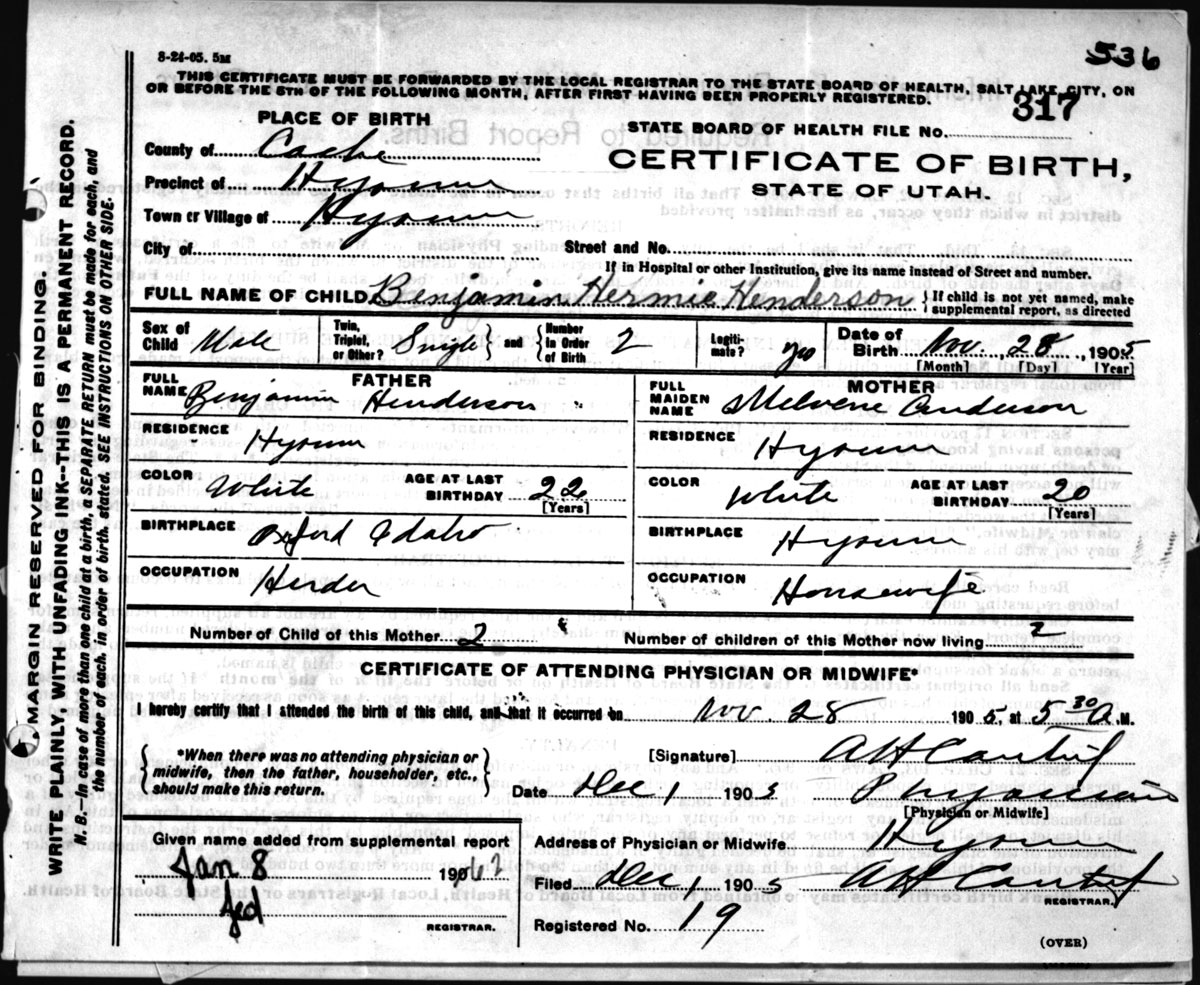 8-24-05. 5M
536
THIS CERTIFICATE MUST BE FORWARDED BY THE LOCAL REGISTRAR TO THE STATE BOARD OF HEALTH, SALT LAKE CITY, ON
OR BEFORE THE 5TH OF THE FOLLOWING MONTH, AFTER FIRST HAVING BEEN PROPERLY REGISTERED.
317
PLACE OF BIRTH
STATE BOARD OF HEALTH FILE No.
County of Cache
CERTIFICATE OF BIRTH,
Precinct of Hyrum
STATE OF UTAH.
Town or Village of Hyrum
City of
Street and No.
If in Hospital or other Institution, give its name instead of Street and number.
FULL NAME OF CHILD Benjamin Hermie Henderson } If child is not yet named, make supplemental report, as directed
Sex of Child Male Twin, Triplet, or Other? Single } and { Number in Order of Birth 2 Legitimate? yes Date of Birth Nov. 28, 1905
[Month] [Day] [Year]
FATHER
MOTHER
FULL NAME Benjamin Henderson
FULL MAIDEN NAME Melvene Anderson
RESIDENCE Hyrum
RESIDENCE Hyrum
COLOR White AGE AT LAST BIRTHDAY 22 [Years]
COLOR White AGE AT LAST BIRTHDAY 20 [Years]
BIRTHPLACE Oxford Idaho
BIRTHPLACE Hyrum
OCCUPATION Herder
OCCUPATION Housewife
Number of Child of this Mother 2 Number of children of this Mother now living 2
CERTIFICATE OF ATTENDING PHYSICIAN OR MIDWIFE*
I hereby certify that I attended the birth of this child, and that it occurred on Nov. 28 1905, at 5 30 A. M.
{ *When there was no attending physician or midwife, then the father, householder, etc., should make this return. }
[Signature] A H
Date Dec 1 1905 Physician
[Physician or Midwife]
Given name added from supplemental report
Address of Physician or Midwife Hyrum
Jan 8 1962
Filed Dec 1 1905 A H
Jed
REGISTRAR.
REGISTRAR.
Registered No. 19
(OVER)
MARGIN RESERVED FOR BINDING.
WRITE PLAINLY, WITH UNFADING INK--THIS IS A PERMANENT RECORD.
N. B.--In case of more than one child at a birth, a SEPARATE RETURN must be made for each, and
the number of each, in order of birth, stated. SEE INSTRUCTIONS ON OTHER SIDE.